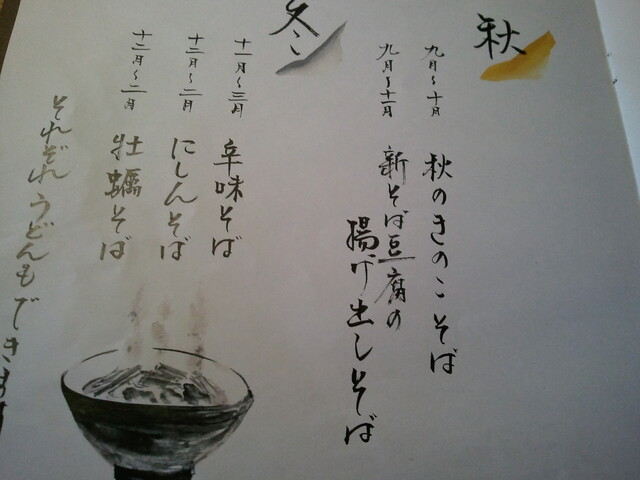 秋
九月〜十月 秋のきのこそば
九月〜十一月 新そば豆腐の
揚げ出しそば
冬
十一月〜三月 辛味そば
十二月〜二月 にしんそば
十二月〜二月 牡蠣そば
それぞれうどんもできます